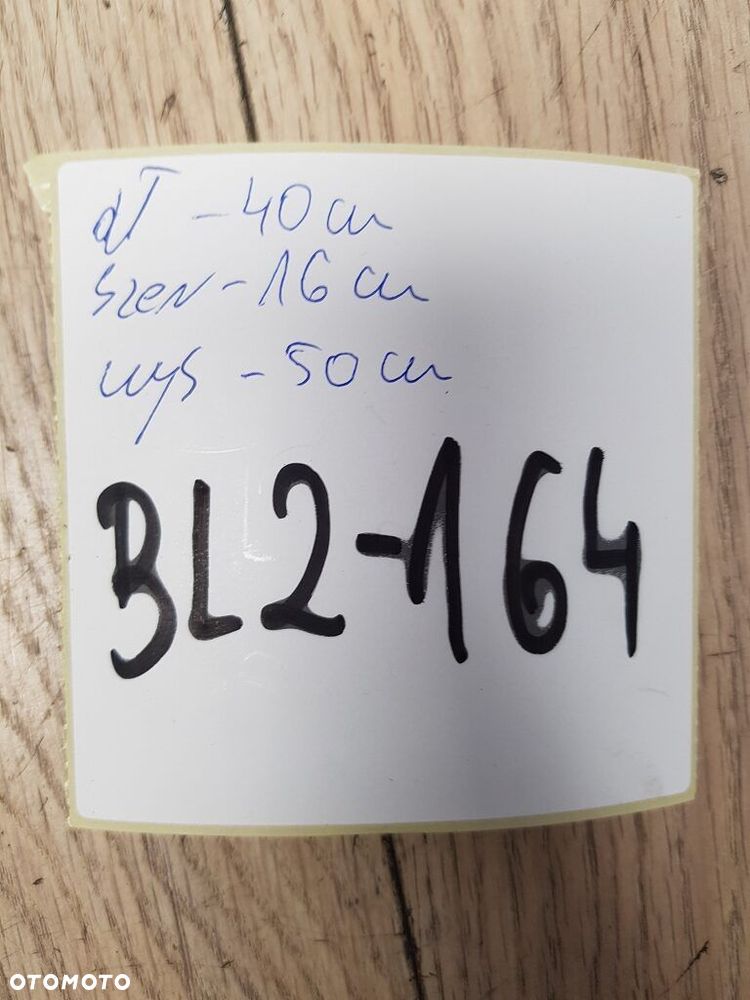 dł - 40 cm
szer - 16 cm
wys - 50 cm
BL2-164
OTOMOTO